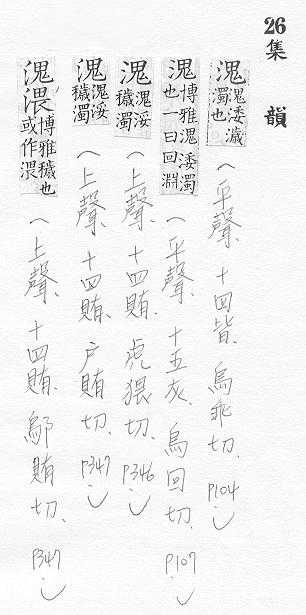 26 集韻
溾 溾㵃濊濁也 (平聲、十四皆、烏乖切、P104.)
溾 博雅溾㵃濁也一曰回淵 (平聲、十五灰、烏回切、P107.)
溾 溾㴰穢濁 (上聲、十四賄、虎猥切、P346.)
溾 溾㴰穢濁 (上聲、十四賄、戶賄切、P347.)
溾渨 博雅穢也或作渨 (上聲、十四賄、鄔賄切、P347.)